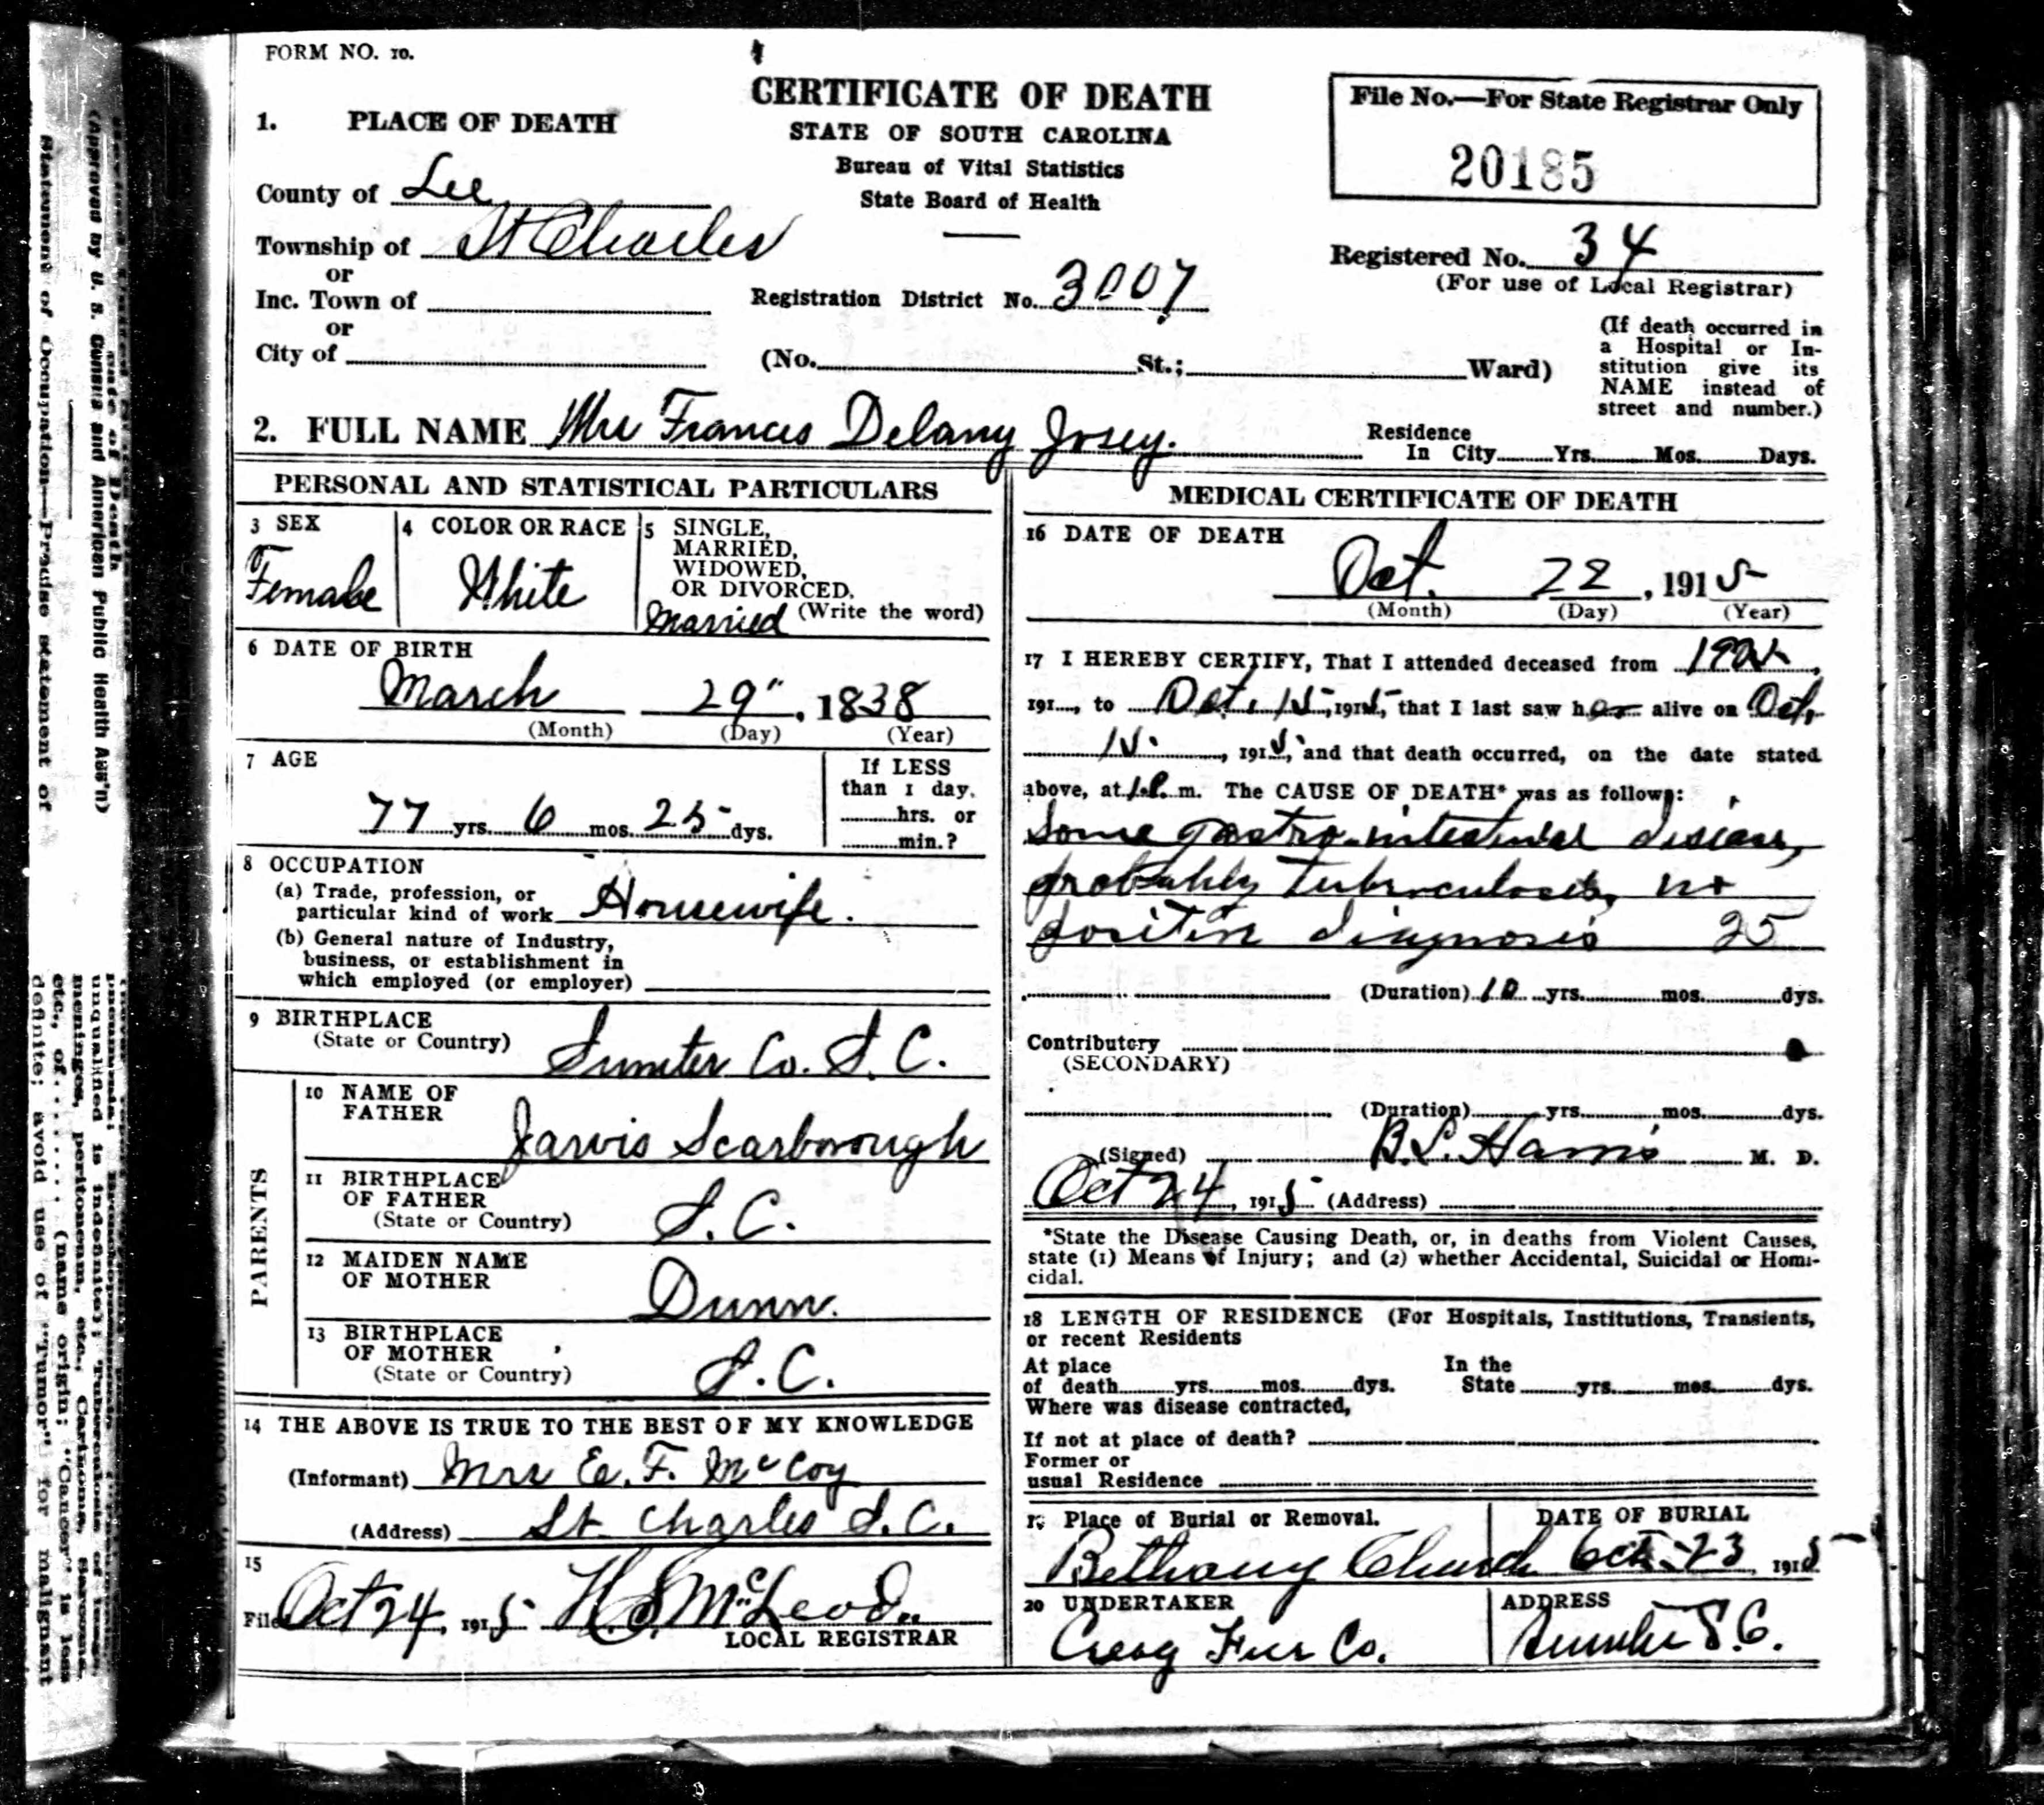 FORM NO. 10.
CERTIFICATE OF DEATH
STATE OF SOUTH CAROLINA
Bureau of Vital Statistics
State Board of Health
File No.—For State Registrar Only
20185
1. PLACE OF DEATH
County of Lee
Township of St Charles
or
Inc. Town of
or
City of
Registration District No. 3007
Registered No. 34
(For use of Local Registrar)
(No. St.; Ward)
(If death occurred in
a Hospital or In-
stitution give its
NAME instead of
street and number.)
2. FULL NAME Mrs Frances Delany Josey.
Residence
In City Yrs. Mos. Days.
PERSONAL AND STATISTICAL PARTICULARS
3 SEX
Female
4 COLOR OR RACE
White
5 SINGLE,
MARRIED,
WIDOWED,
OR DIVORCED.
Married (Write the word)
6 DATE OF BIRTH
March 29", 1838
(Month) (Day) (Year)
7 AGE
77 yrs. 6 mos. 25 dys.
If LESS
than 1 day,
hrs. or
min.?
8 OCCUPATION
(a) Trade, profession, or
particular kind of work Housewife.
(b) General nature of Industry,
business, or establishment in
which employed (or employer)
9 BIRTHPLACE
(State or Country) Sumter Co. S.C.
PARENTS
10 NAME OF
FATHER
Jarvis Scarborough
11 BIRTHPLACE
OF FATHER
(State or Country) S.C.
12 MAIDEN NAME
OF MOTHER
Dunn.
13 BIRTHPLACE
OF MOTHER
(State or Country) S.C.
14 THE ABOVE IS TRUE TO THE BEST OF MY KNOWLEDGE
(Informant) Mrs E. F. McCoy
(Address) St Charles S.C.
15
Filed Oct 24, 1915 H. S. McLeod
LOCAL REGISTRAR
MEDICAL CERTIFICATE OF DEATH
16 DATE OF DEATH
Oct. 22, 1915
(Month) (Day) (Year)
17 I HEREBY CERTIFY, That I attended deceased from
191 , to Oct. 15, 1915, that I last saw her alive on Oct.
15, 1915, and that death occurred, on the date stated
above, at 1 P. m. The CAUSE OF DEATH* was as follows:
Some gastro-intestinal disease,
probably tuberculosis, no
positive diagnosis 25
(Duration) 10 yrs. mos. dys.
Contributory
(SECONDARY)
(Duration) yrs. mos. dys.
(Signed) B.L. Harris M. D.
Oct 24, 1915 (Address)
*State the Disease Causing Death, or, in deaths from Violent Causes,
state (1) Means of Injury; and (2) whether Accidental, Suicidal or Homi-
cidal.
18 LENGTH OF RESIDENCE (For Hospitals, Institutions, Transients,
or recent Residents
At place
of death yrs. mos. dys.
In the
State yrs. mos. dys.
Where was disease contracted,
If not at place of death?
Former or
usual Residence
19 Place of Burial or Removal.
Bethany Church
DATE OF BURIAL
Oct. 23 1915
20 UNDERTAKER
Fur Co.
ADDRESS
Sumter S.C.
(Approved by U. S. Census and American Public Health Ass'n)
Statement of Occupation—Precise statement of
unqualified is indefinite); Tuberculosis of lungs,
meninges, peritoneum, etc., Carcinoma, Sarcoma,
etc., of ...... (name origin; "Cancer" is less
definite; avoid use of "Tumor" for malignant